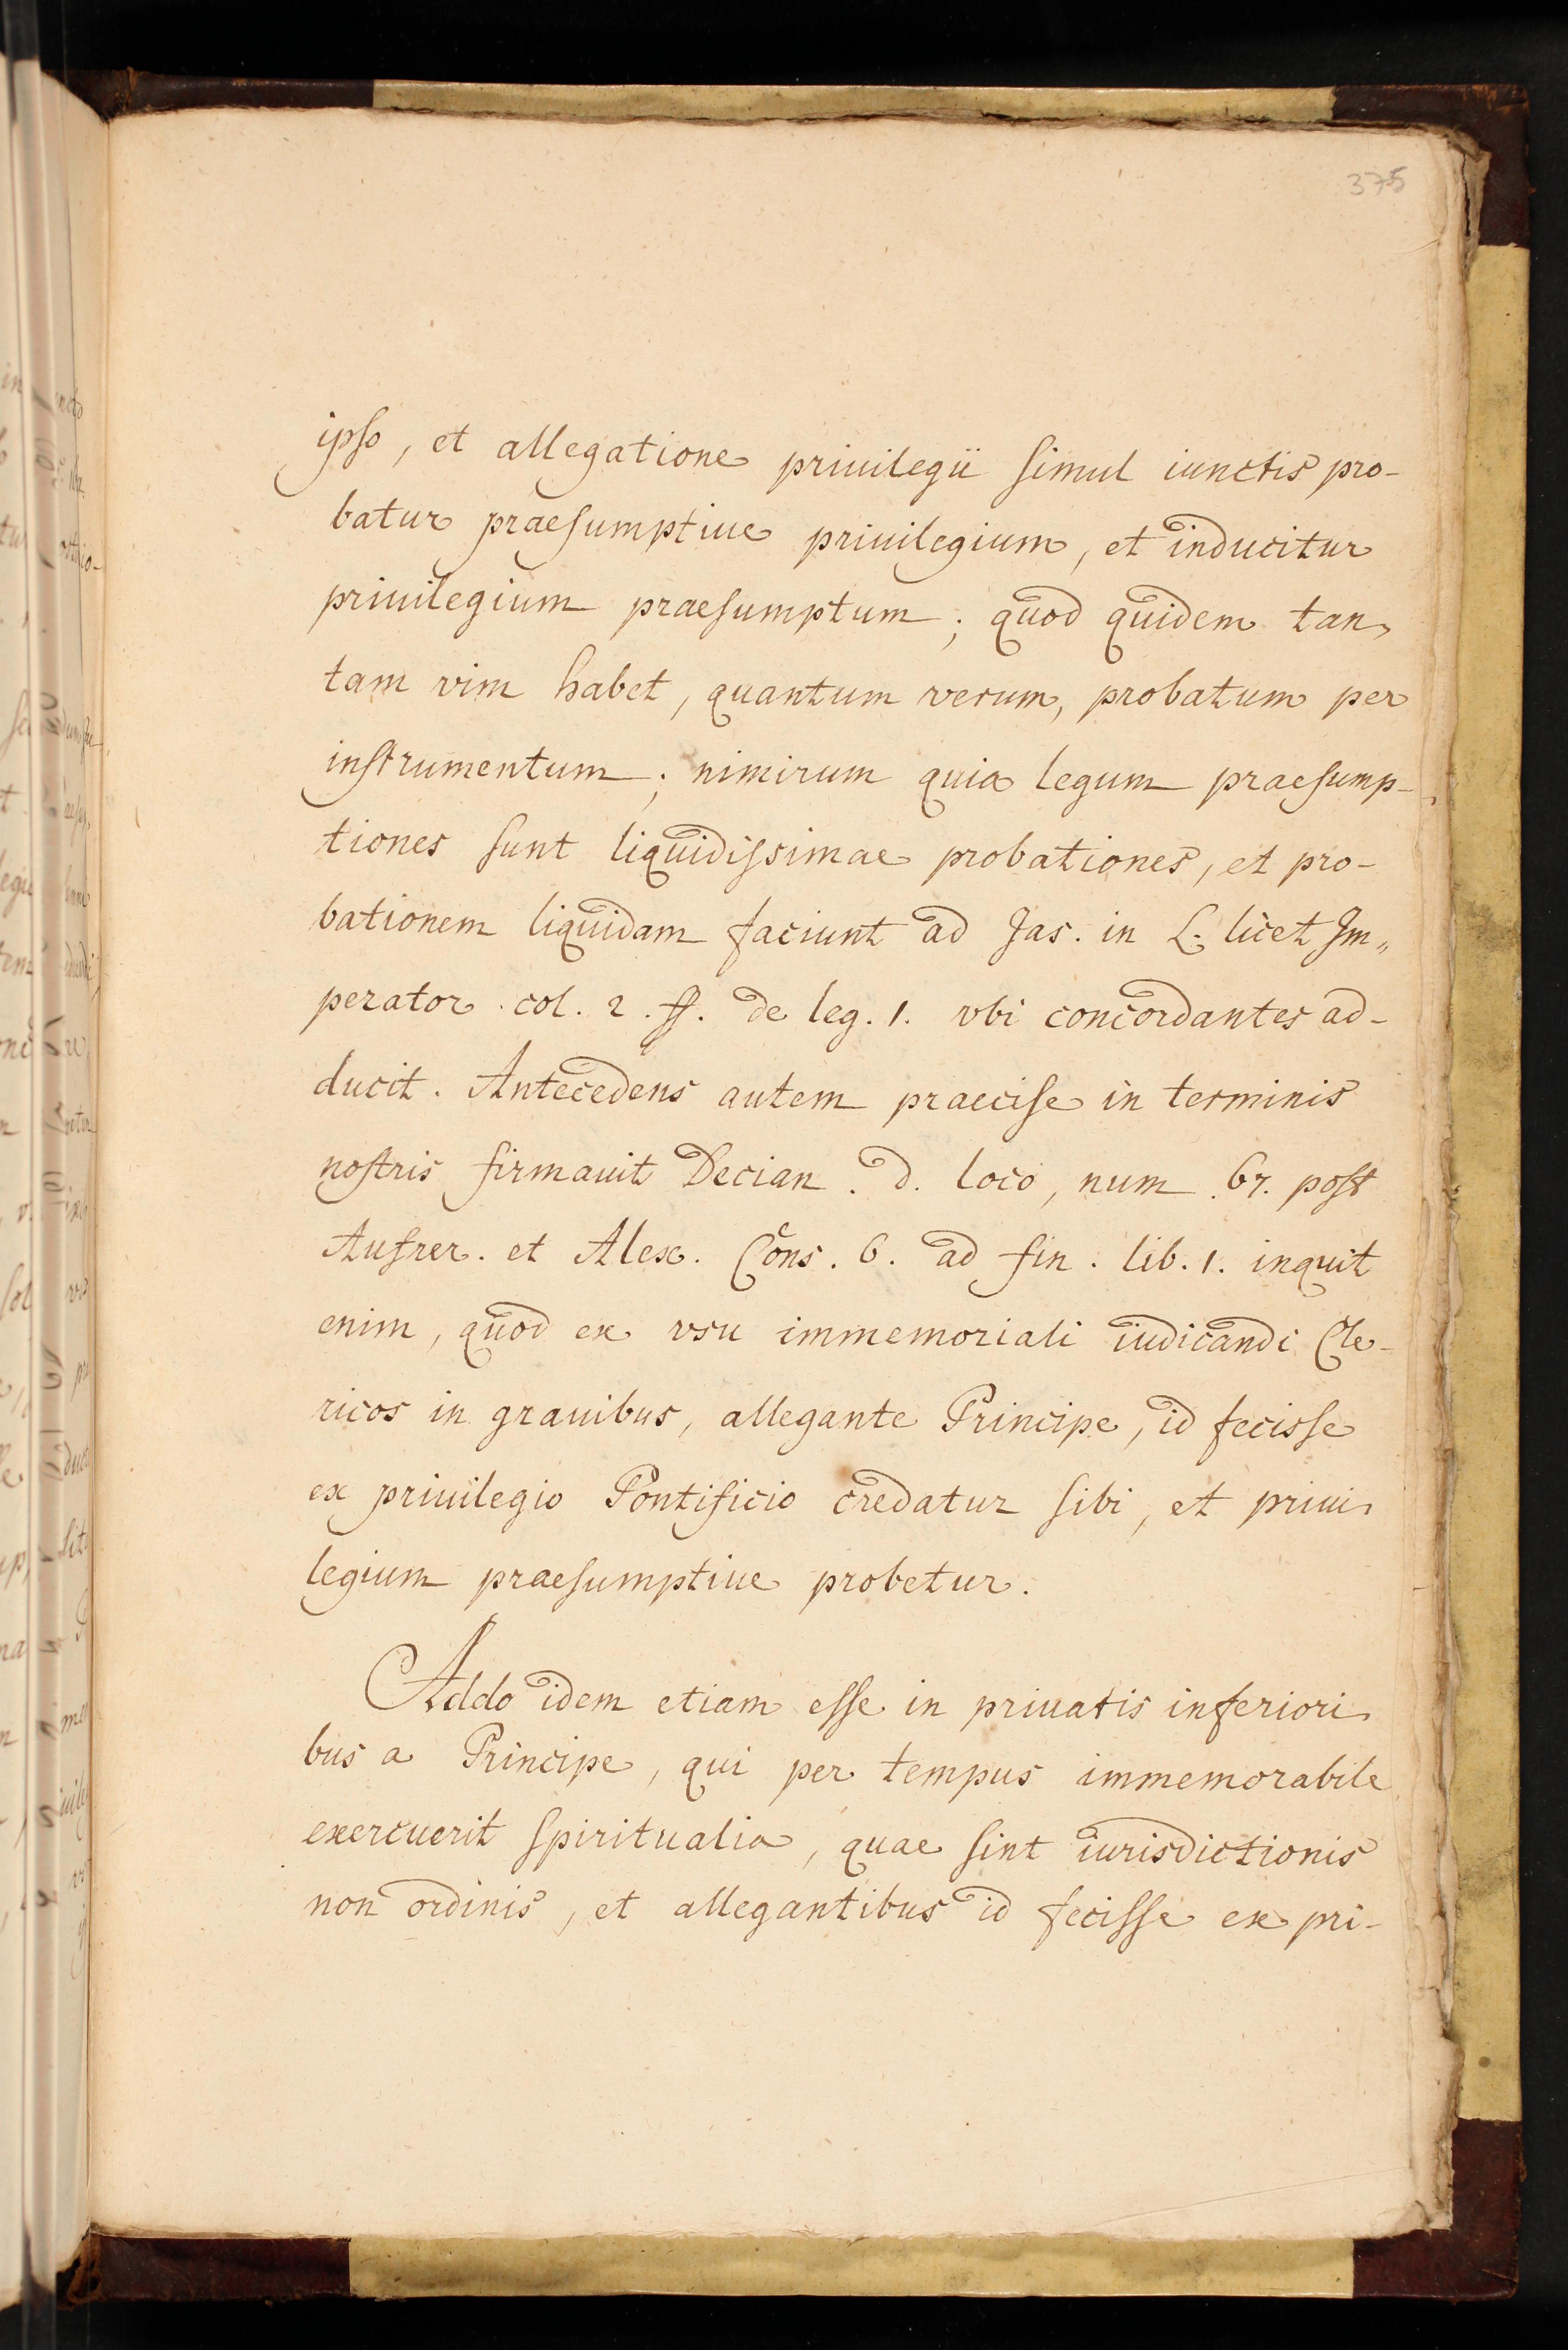 375
ipso, et allegatione priuilegii simul iunctis pro-
batur praesumptiue priuilegium, et inducitur
priuilegium praesumptum; quod quidem tan,
tam vim habet, quantum verum, probatum per
instrumentum; nimirum quia legum praesump-
tiones sunt liquidissimae probationes, et pro-
bationem liquidam faciunt ad Jas. in L. licet Im„
perator. col. 2. ff. de leg. 1. vbi concordantes ad-
ducit. Antecedens autem praecise in terminis
nostris firmauit Decian. d. loco, num. 67. post
Aufrer. et Alex. Cons. 6. ad fin. lib. 1. inquit
enim, quod ex vsu immemoriali iudicandi Cle-
ricos in grauibus, allegante Principe, id fecisse
ex priuilegio Pontificio credatur sibi, et priui,
legium praesumptiue probetur.
Addo idem etiam esse in priuatis inferiori,
bus a Principe, qui per tempus immemorabile
exercuerit spiritualia, quae sint iurisdictionis
non ordinis, et allegantibus id fecisse ex pri-